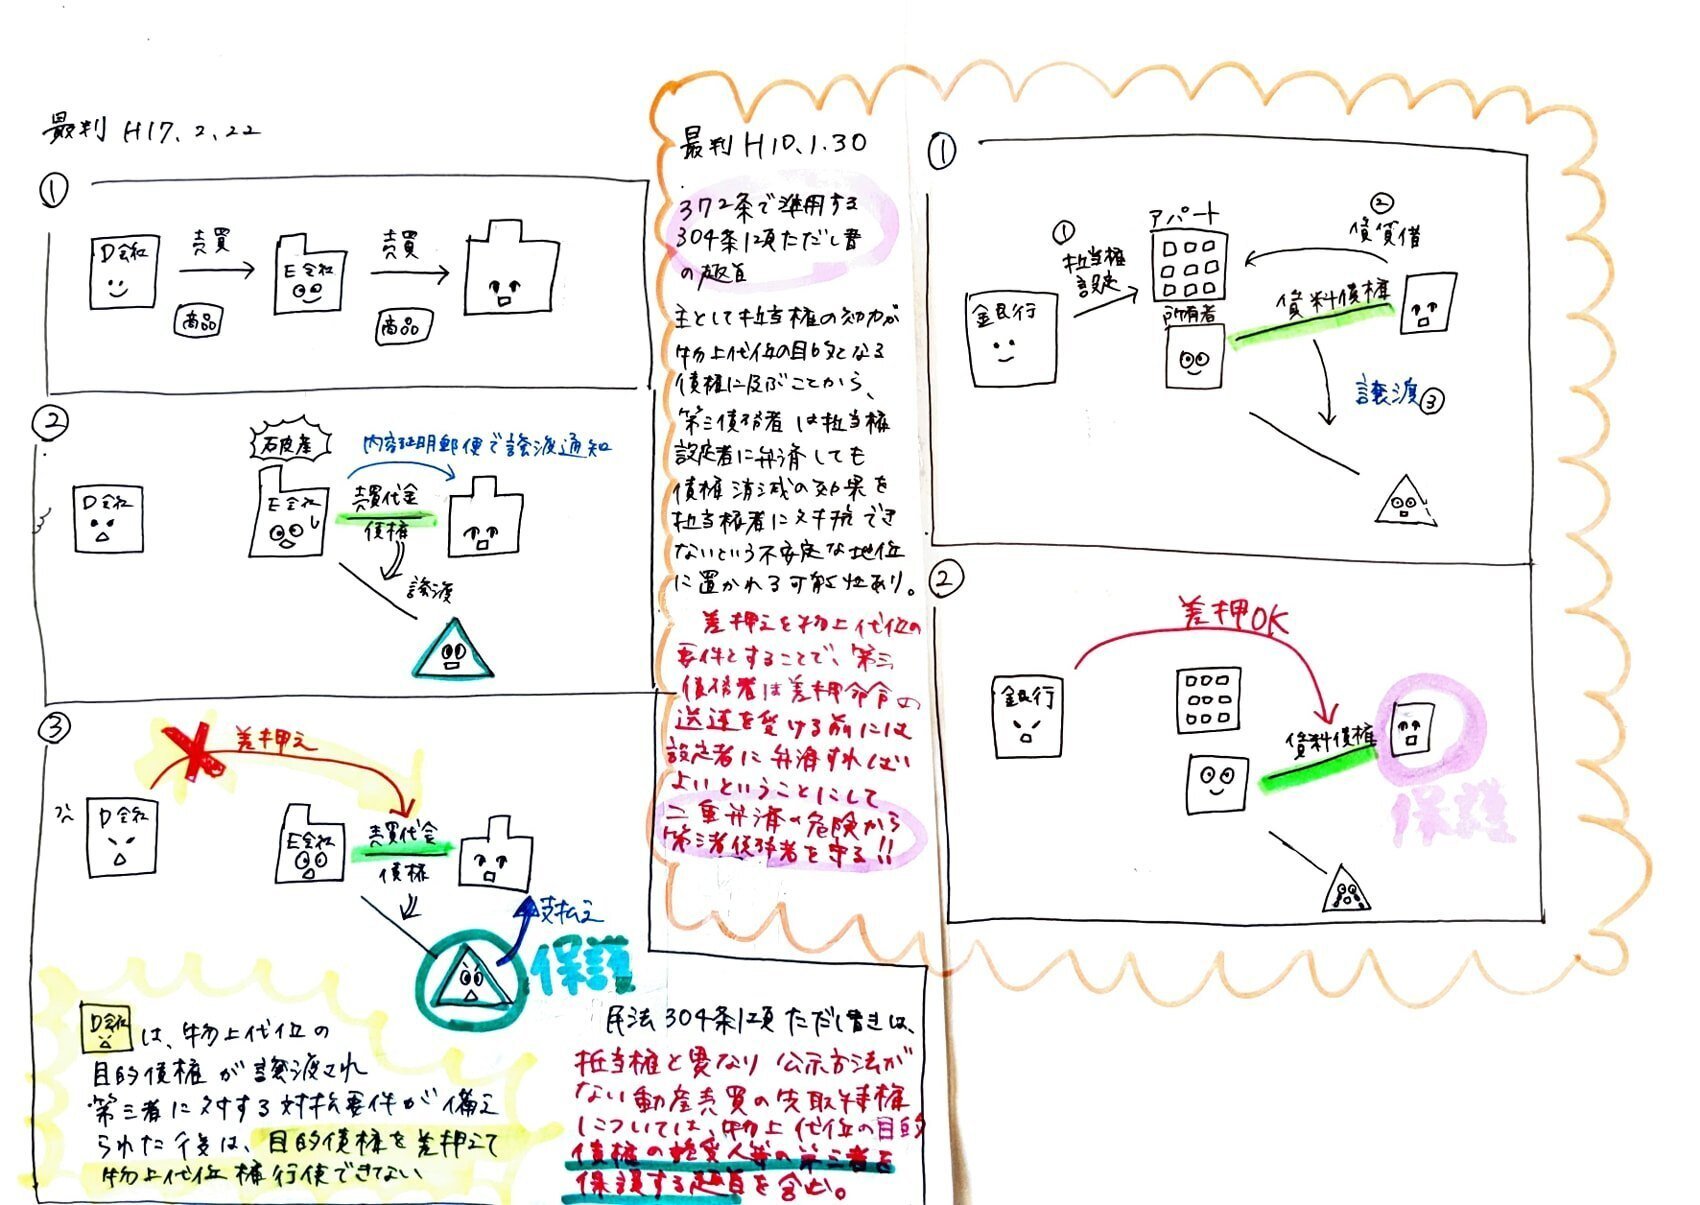 最判 H17.2.22
①
D会社
売買
商品
E会社
売買
商品
②
D会社
破産
E会社
内容証明郵便で譲渡通知
売買代金
債権
譲渡
③
差押え
D会社
E会社
売買代金
債権
支払え
保護
D会社は、物上代位の
目的債権が譲渡され
第三者に対する対抗要件が備え
られた後は、目的債権を差押えて
物上代位権行使できない
民法304条1項ただし書きは、
抵当権と異なり公示方法が
ない動産売買の先取特権
については、物上代位の目的
債権の譲受人等の第三者を
保護する趣旨を含む。
最判 H10.1.30
372条で準用する
304条1項ただし書
の趣旨
主として抵当権の効力が
物上代位の目的となる
債権に及ぶことから、
第三債務者は抵当権
設定者に弁済しても
債権消滅の効果を
抵当権者に対抗でき
ないという不安定な地位
に置かれる可能性あり。
差押えを物上代位の
要件とすることで、第三
債務者は差押命令の
送達を受ける前には
設定者に弁済すればい
よいということにして
二重弁済の危険から
第三者債務者を守る!!
①
銀行
①
抵当権
設定
アパート
所有者
②
賃貸借
賃料債権
譲渡③
②
差押OK
銀行
賃料債権
保護